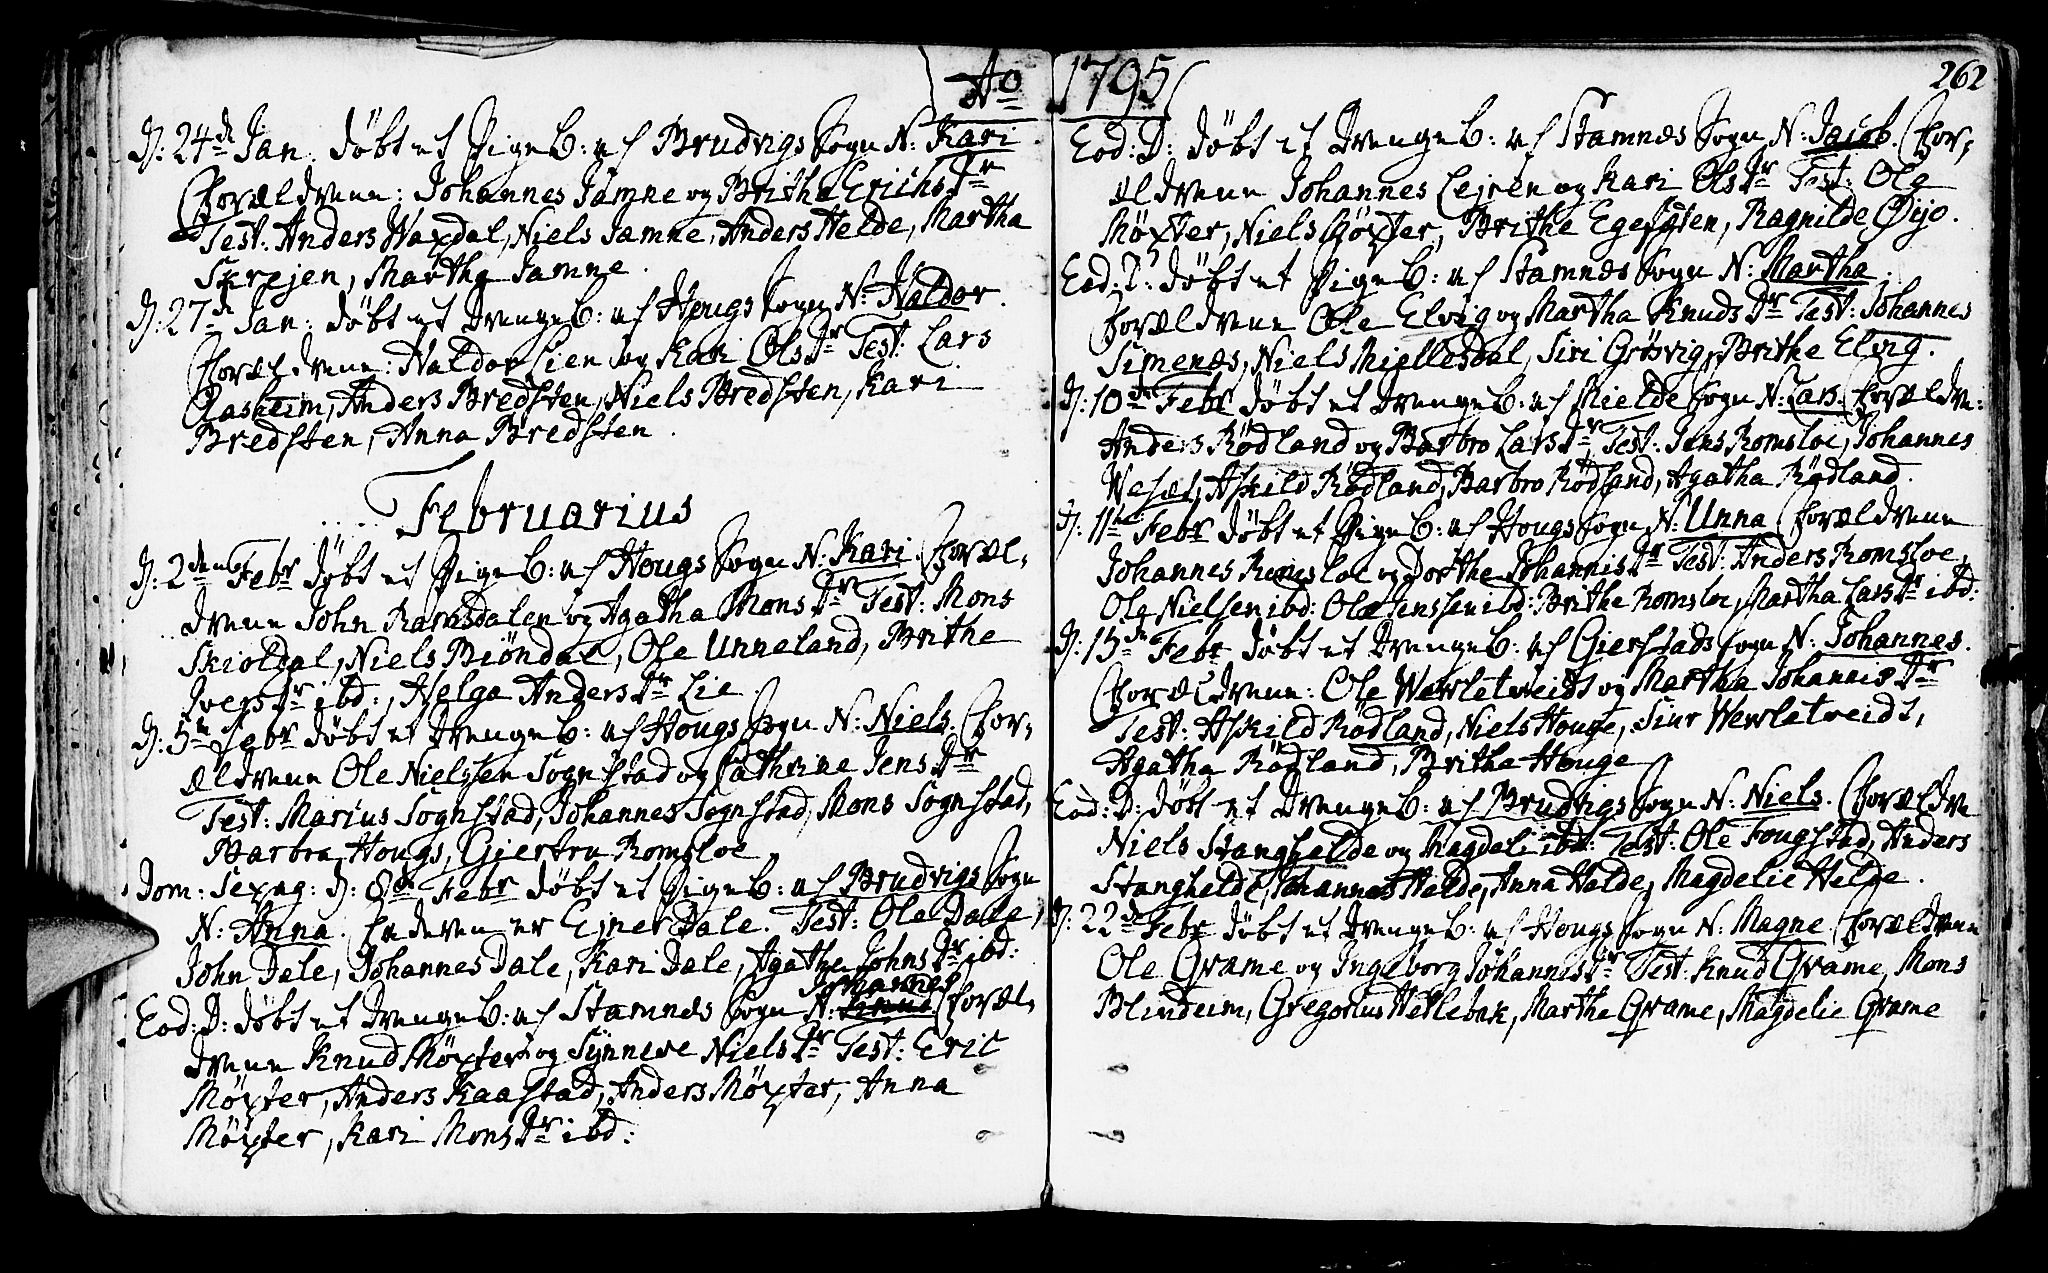 Ao 1795
262
D: 24de Jan. døbt et Pige B: af Brudvigs Sogn N: Kari
Forældrene: Johannes Jamne og Brithe Erichs Dr
Test: Anders Waxdal, Niels Jamne, Anders Helde, Martha
Skrejen, Martha Jamne.
D: 27de Jan: døbt et Drenge B: af Hougs Sogn N: Haldor.
Forældrene: Haldor Lien og Kari Ols Dr Test: Lars
Clasheim, Anders Bredsten, Niels Bredsten, Kari
Bredsten, Anna Bredsten.
Februarius
D: 2den Febr døbt et Pige B: af Hougs Sogn N: Kari. Foræl-
drene John Ramsdalen og Agatha Mons Dr Test: Mons
Skioldal, Niels Biöndal, Ole Unneland, Brithe
Ivers Dr ibd:, Helga Anders Dr Lie
D: 5te Febr døbt et Drenge B: af Hougs Sogn N: Niels. For-
ældrene Ole Nielssen Sognstad og Cathrine Jens Dr
Test: Marius Sognstad, Johannes Sognstad, Mons Sognstad,
Barbra Hougs, Giertru Romsloe
Dom: Sexag: D: 8de Febr døbt et Pige B: af Brudvigs Sogn
N: Anna. Faderen er Ejner Dale. Test: Ole Dale,
John Dale, Johannes Dale, Kari Dale, Agathe Johns Dr ibd:
Johannes
Eod: D: døbt et Drenge B: af Stamnes Sogn N: Foræl-
drene Knud Møxter og Synneve Niels Dr Test: Eric
Møxter, Anders Kaastad, Anders Møxter, Anna
Møxter, Kari Mons Dr ibd:
Eod: D: døbt et Drenge B: af Stamnes Sogn N: Jacob. For-
ældrene Johannes Lejren og Kari Ols Dr Test: Ole
Møxter, Niels Møxter, Brithe Egesæten, Ragnilde Øijo.
Eod: D: døbt et Pige B: af Stamnes Sogn N: Martha.
Forældrene Ole Elvig og Martha Knuds Dr Test: Johannes
Simenes, Niels Mjellesdal, Siri Grøsvig, Brithe Elvig.
D: 10de Febr døbt et Drenge B: af Mielde Sogn N: Lars. Forældre:
Anders Rödland og Barbro Lars Dr, Test: Jens Romsloe, Johannes
Wesæt, Askild Rødland, Barbro Rødland, Agatha Rødland.
D: 11te Febr døbt et Pige B: af Hougs Sogn N: Unna Forældrene
Johannes Romsloe og Dorthe Johannis Dr Test: Anders Romsloe,
Ole Nielsen ibd: Ole Jenssen ibd: Brithe Romsloe, Martha Lars Dr ibd:
D: 15de Febr døbt et Drenge B: af Gierstads Sogn N: Johannes.
Forældrene: Ole Werletveidt og Martha Johannis Dr
Test: Askild Rødland, Niels Houge, Siur Werletveidt,
Agatha Rödland, Brithe Houge
Eod: D: døbt et Drenge B: af Brudvigs Sogn N: Niels. Forældre
Niels Stanghelde og Magdeli ibd: Test: Ole Fougstad, Anders
Stanghelde, Johannes Halde, Anna Halde, Magdelie Helde.
D: 22de Febr døbt et Drenge B: af Hougs Sogn N: Magne. Forældrene
Ole Qvame og Ingeborg Johannis Dr Test: Knud Qvame, Mons
Blindeim, Gregorius Hetlebak, Marthe Qvame, Magdelie Qvame